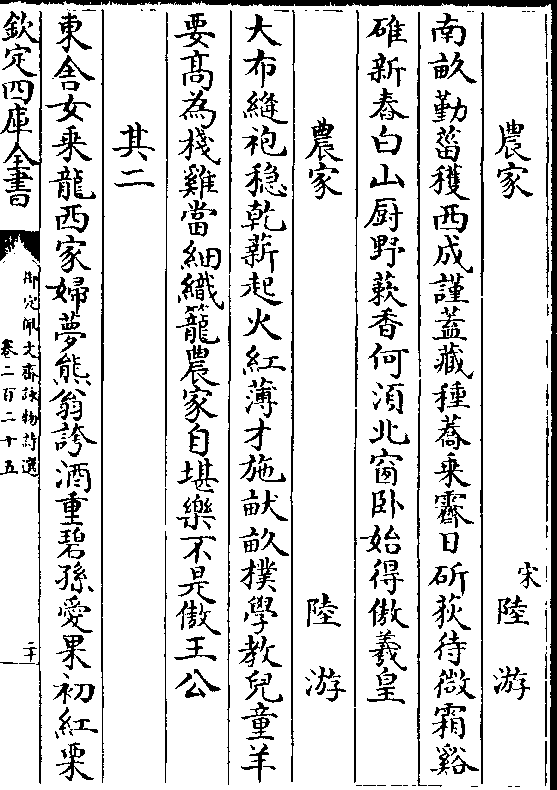 農家　宋陸游
南畝勤菑穫西成謹蓋藏種蕎乗霽日斫荻待微霜谿
碓新舂白山厨野蔌香何須北窗卧始得傲羲皇
農家　陸游
大布縫袍穏乾薪起火紅薄才施畎畝樸學教兒童羊
要髙為棧雞當細織籠農家自堪樂不是傲王公
其二
東舍女乗龍西家婦夢熊翁誇酒重碧孫愛果初紅栗
欽定四庫全書
御定佩文齋詠物詩選
卷二百二十五
二十